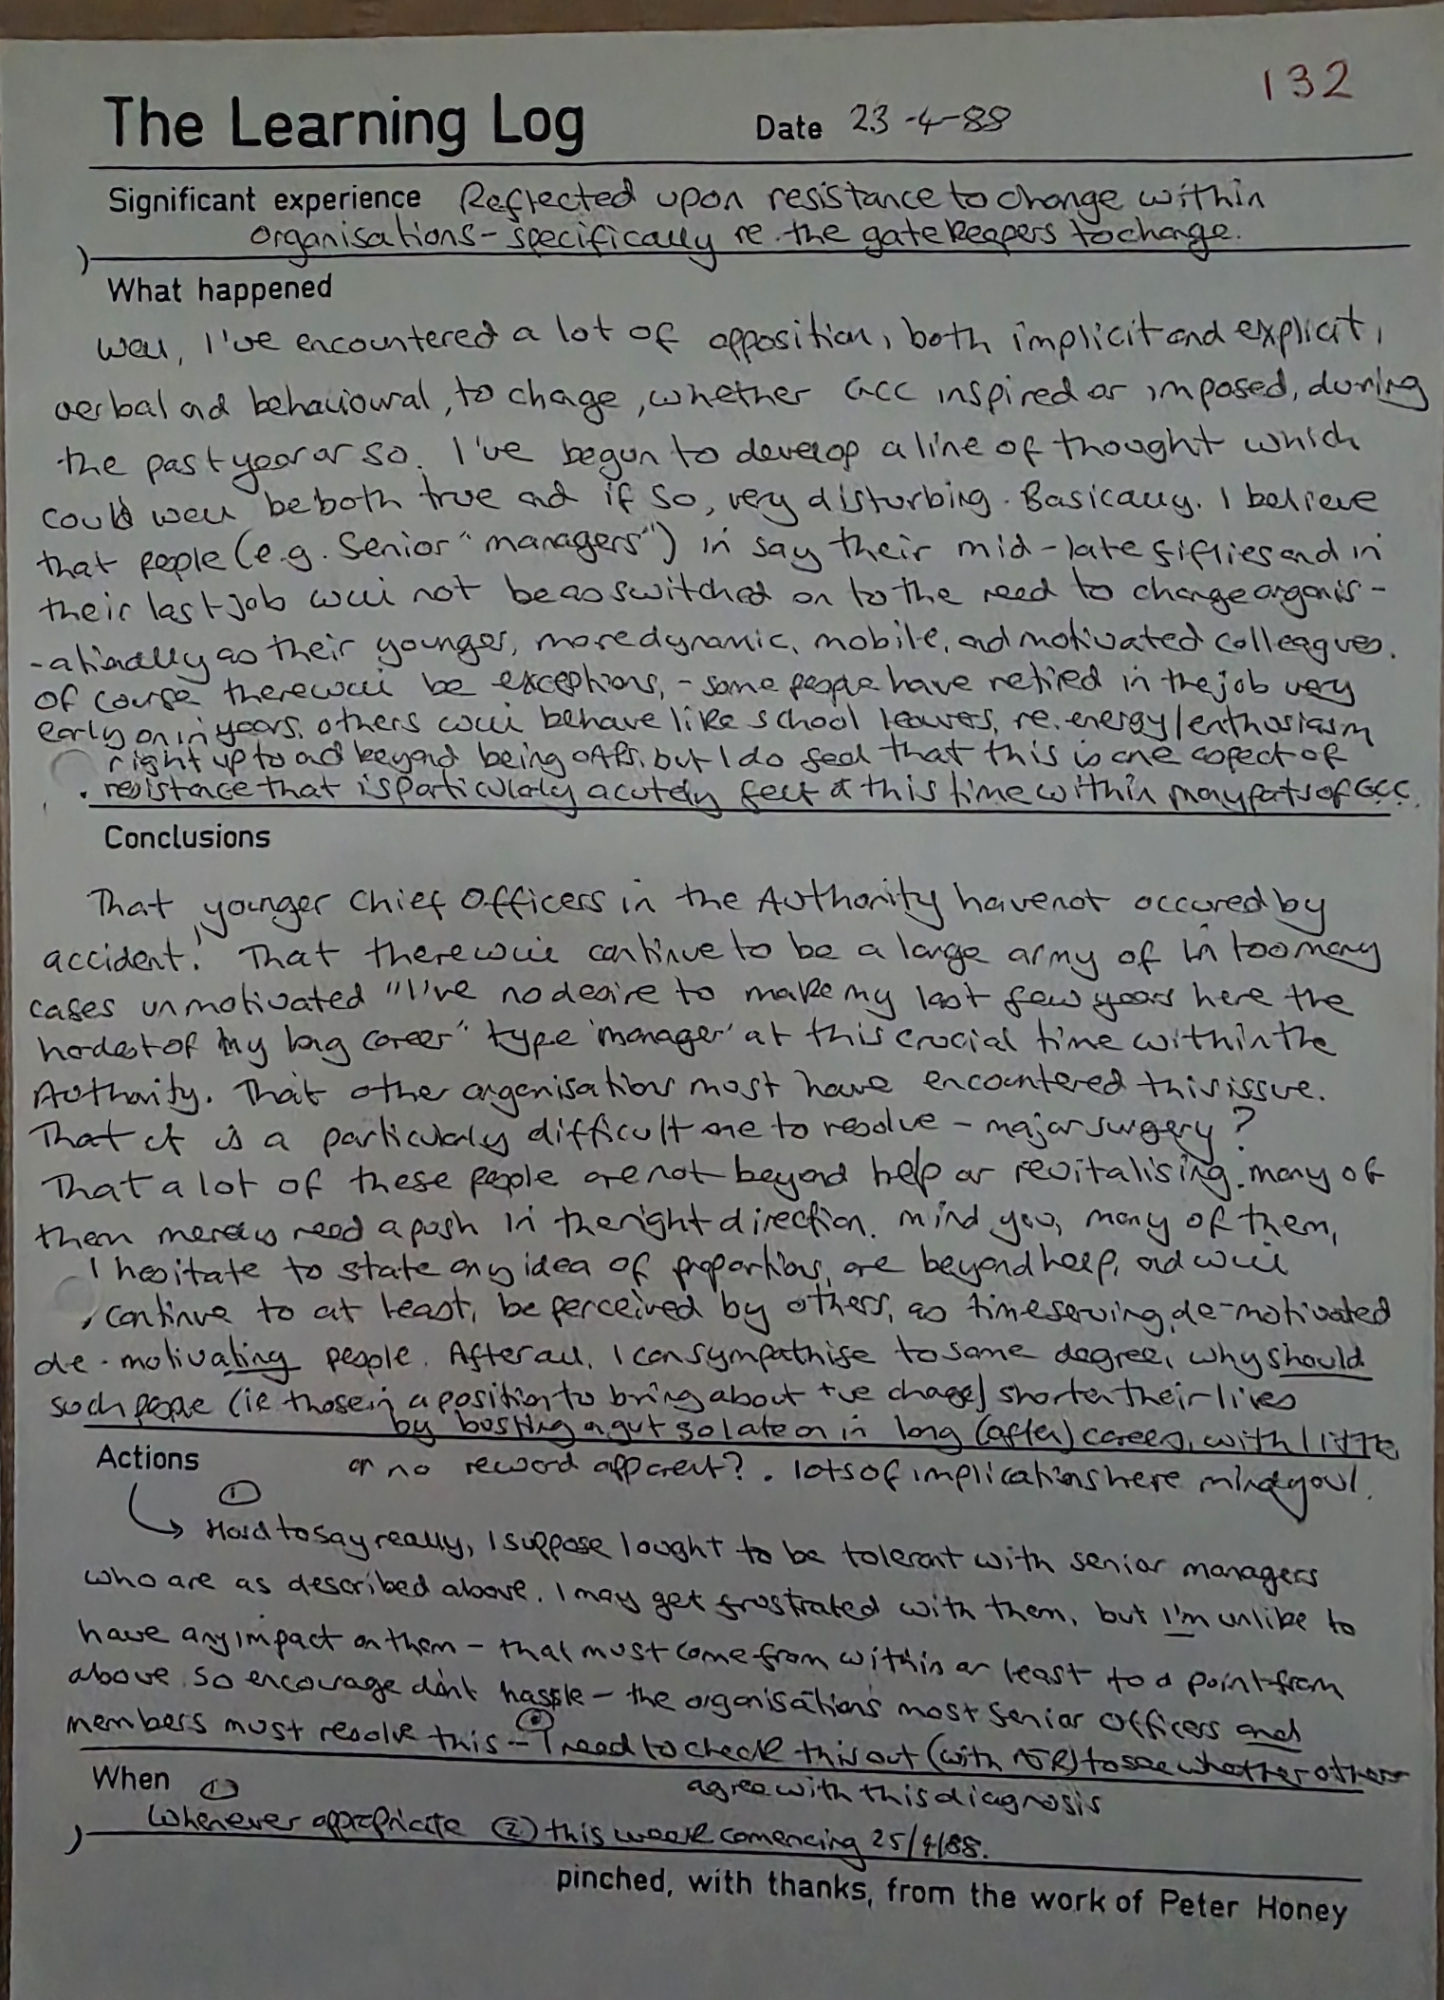 132
The Learning Log Date 23-4-88
Significant experience Reflected upon resistance to change within
organisations - specifically re. the gatekeepers to change.
What happened
Well, I've encountered a lot of opposition, both implicit and explicit,
verbal and behavioural, to change, whether GCC inspired or imposed, during
the past year or so. I've begun to develop a line of thought which
could well be both true and if so, very disturbing. Basically. I believe
that people (e.g. Senior "managers") in say their mid-late fifties and in
their last job will not be as switched on to the need to change organis-
-ationally as their younger, more dynamic, mobile, and motivated colleagues.
Of course there will be exceptions, - some people have retired in the job very
early on in years, others will behave like school leavers, re. energy/enthusiasm
right up to and beyond being OAPs, but I do feel that this is one aspect of
resistance that is particularly acutely felt at this time within many parts of GCC.
Conclusions
That, younger Chief Officers in the Authority have not occured by
accident! That there will continue to be a large army of in too many
cases unmotivated "I've no desire to make my last few years here the
hardest of my long career" type 'manager' at this crucial time within the
Authority. That other organisations must have encountered this issue.
That it is a particularly difficult one to resolve - major surgery?
That a lot of these people are not beyond help or revitalising. many of
them merely need a push in the right direction. Mind you, many of them,
I hesitate to state any idea of proportions, are beyond help, and will
continue to at least, be perceived by others, as timeserving, de-motivated
de-motivating people. After all, I can sympathise to some degree, why should
such people (ie those in a position to bring about +ve change) shorten their lives
by busting a gut so late on in long (often) careers, with little
Actions or no reward apparent?. Lots of implications here mind you!.
①
Hard to say really, I suppose I ought to be tolerant with senior managers
who are as described above. I may get frustrated with them, but I'm unlike to
have any impact on them - that must come from within or least to a point from
above. So encourage don't hassle - the organisations most senior officers and
members must resolve this - ② I need to check this out (with) to see whether others
agree with this diagnosis
When ①
Whenever appropriate ② this week comencing 25/4/88.
pinched, with thanks, from the work of Peter Honey